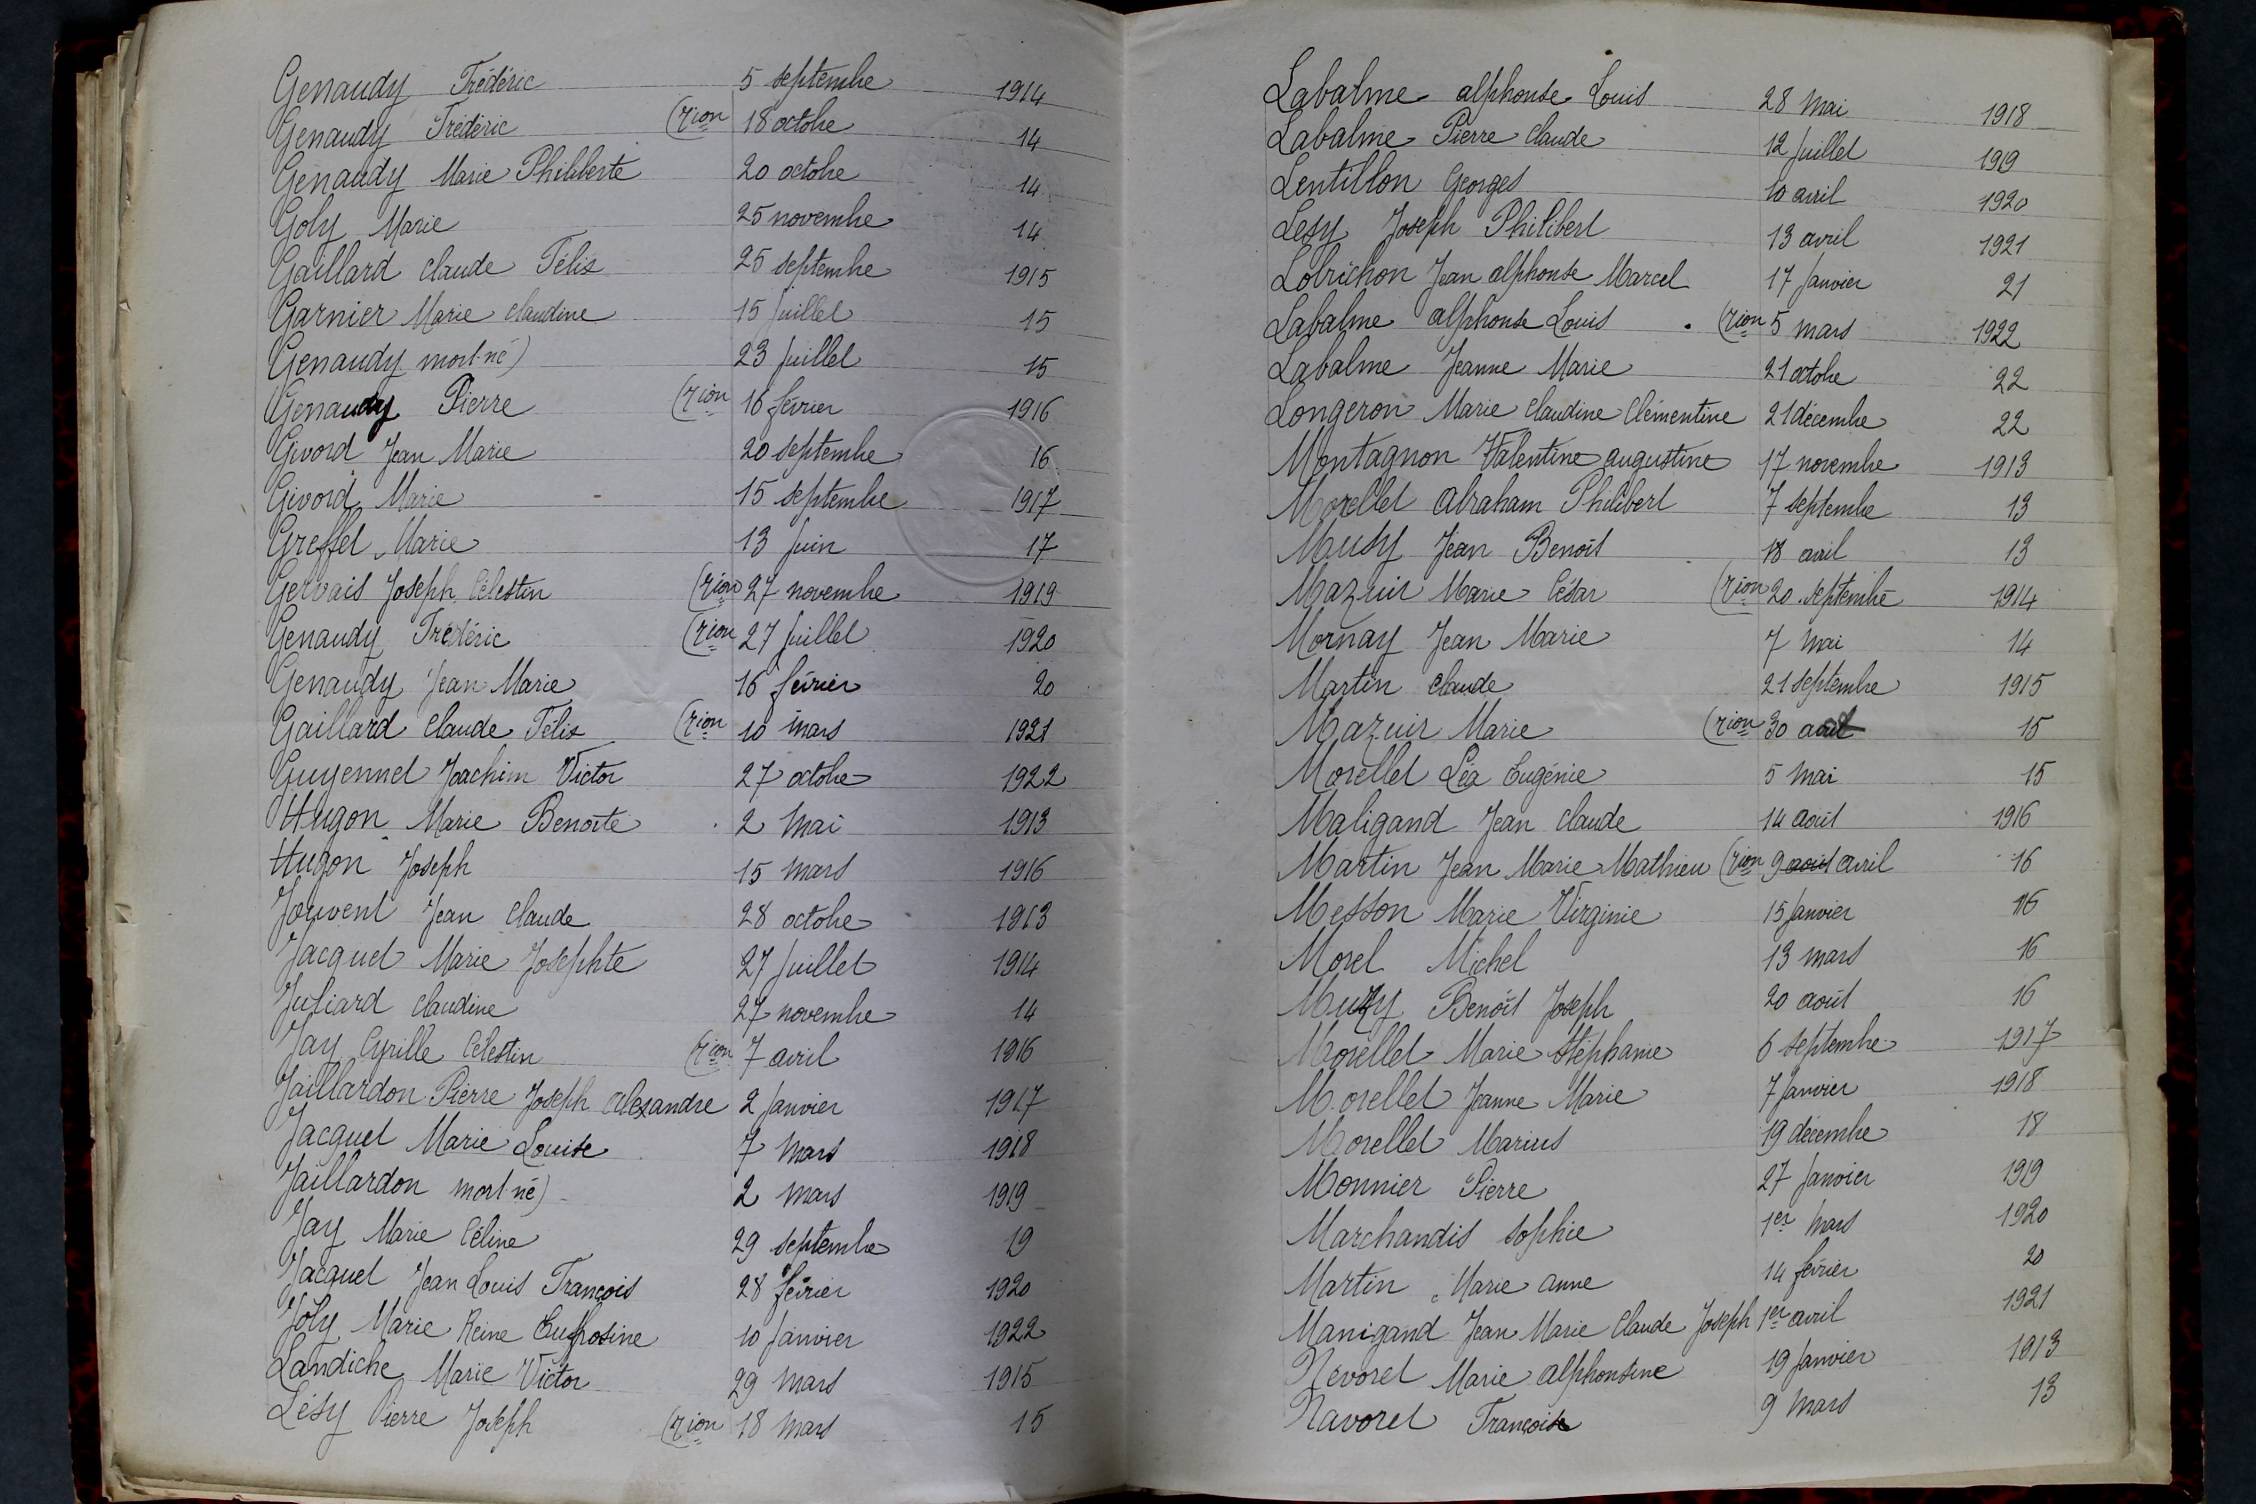 Genaudy Frédéric 5 septembre 1914
Genaudy Frédéric (rion 18 octobre 14
Genaudy Marie Philiberte 20 octobre 14
Goly Marie 25 novembre 14
Gaillard Claude Félix 25 septembre 1915
Garnier Marie Claudine 15 Juillet 15
Genaudy mort-né) 23 Juillet 15
Genaudy Pierre (rion 16 février 1916
Givord Jean Marie 20 septembre 16
Givord Marie 15 septembre 1917
Greffet Marie 13 Juin 17
Gervais Joseph Célestin (rion 27 novembre 1919
Genaudy Frédéric (rion 27 Juillet 1920
Genaudy Jean Marie 16 février 20
Gaillard Claude Félix (rion 10 mars 1921
Guyennet Joachim Victor 27 octobre 1922
Hugon Marie Benoîte 2 Mai 1913
Hugon Joseph 15 mars 1916
Jouvent Jean Claude 28 octobre 1913
Jacquet Marie Josephte 27 Juillet 1914
Juliard Claudine 27 novembre 14
Jay Cyrille Célestin (rion 7 avril 1916
Jaillardon Pierre Joseph Alexandre 2 Janvier 1917
Jacquet Marie Louise 7 Mars 1918
Jaillardon mort-né) 2 Mars 1919
Jay Marie Céline 29 septembre 19
Jacquet Jean Louis François 28 février 1920
Joly Marie Reine Eufrosine 10 Janvier 1922
Landiche Marie Victor 29 Mars 1915
Lésy Pierre Joseph (rion 18 Mars 15
Labalme Alphonse Louis 28 Mai 1918
Labalme Pierre Claude 12 Juillet 1919
Lentillon Georges 10 avril 1920
Lesy Joseph Philibert 13 avril 1921
Lobrichon Jean Alphonse Marcel 17 Janvier 21
Labalme Alphonse Louis (rion 5 mars 1922
Labalme Jeanne Marie 21 octobre 22
Longeron Marie Claudine Clémentine 21 décembre 22
Montagnon Valentine Augustine 17 novembre 1913
Morellet Abraham Philibert 7 septembre 13
Musy Jean Benoît 18 avril 13
Mazuir Marie César (rion 20 septembre 1914
Mornay Jean Marie 7 Mai 14
Martin Claude 21 septembre 1915
Mazuir Marie (rion 30 août 15
Morellet Léa Eugénie 5 Mai 15
Maligand Jean Claude 14 août 1916
Martin Jean Marie Mathieu (rion 9 août avril 16
Messon Marie Virginie 15 Janvier 16
Morel Michel 13 mars 16
Muzy Benoît Joseph 20 août 16
Morellet Marie Stéphanie 6 septembre 1917
Morellet Jeanne Marie 7 Janvier 1918
Morellet Marius 19 décembre 18
Monnier Pierre 27 Janvier 1919
Marchandis Sophie 1er Mars 1920
Martin Marie Anne 14 février 20
Manigand Jean Marie Claude Joseph 1er avril 1921
Névoret Marie Alphonsine 19 Janvier 1913
Navoret François 9 Mars 13